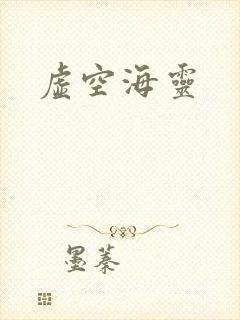 虛空海靈
墨蓁